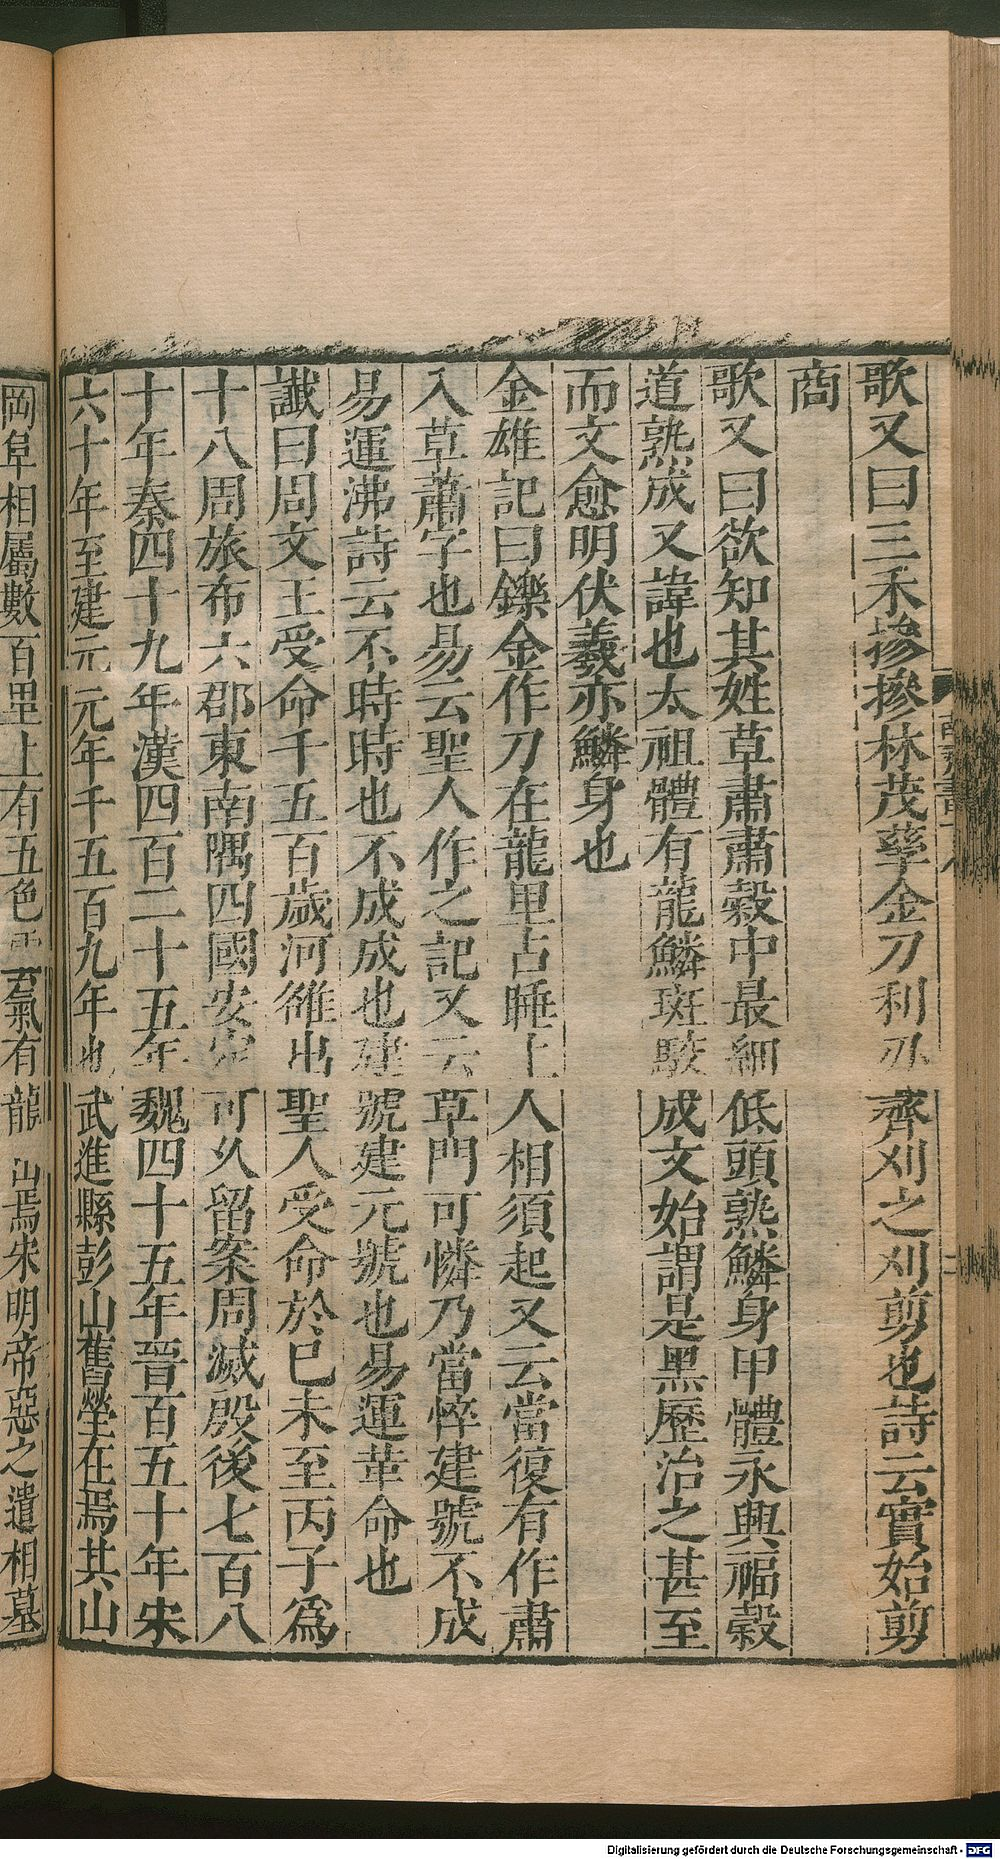 歌又曰三禾摻摻林茂孳金刀利刃齊刈之刈剪也詩云實始剪
商
歌又曰欲知其姓草肅肅穀中最細低頭熟鱗身甲體永興福穀
道熟成又諱也太祖體有龍鱗斑駮成文始謂是黑歷治之甚至
而文愈明伏羲亦鱗身也
金雄記曰鑠金作刀在龍里占睡上人相須起又云當復有作肅
入草蕭字也易云聖人作之記又云草門可憐乃當悴建號不成
易運沸詩云不時時也不成成也建號建元號也易運革命也
讖曰周文王受命千五百歲河雒出聖人受命於巳未至丙子為
十八周旅布六郡東南隅四國安定可久留案周滅殷後七百八
十年秦四十九年漢四百二十五年魏四十五年晉百五十年宋
六十年至建元元年千五百九年也武進縣彭山舊塋在焉其山
岡阜相屬數百里上有五色雲氣有龍出焉宋明帝惡之遣相墓
Digitalisierung gefördert durch die Deutsche Forschungsgemeinschaft - DFG